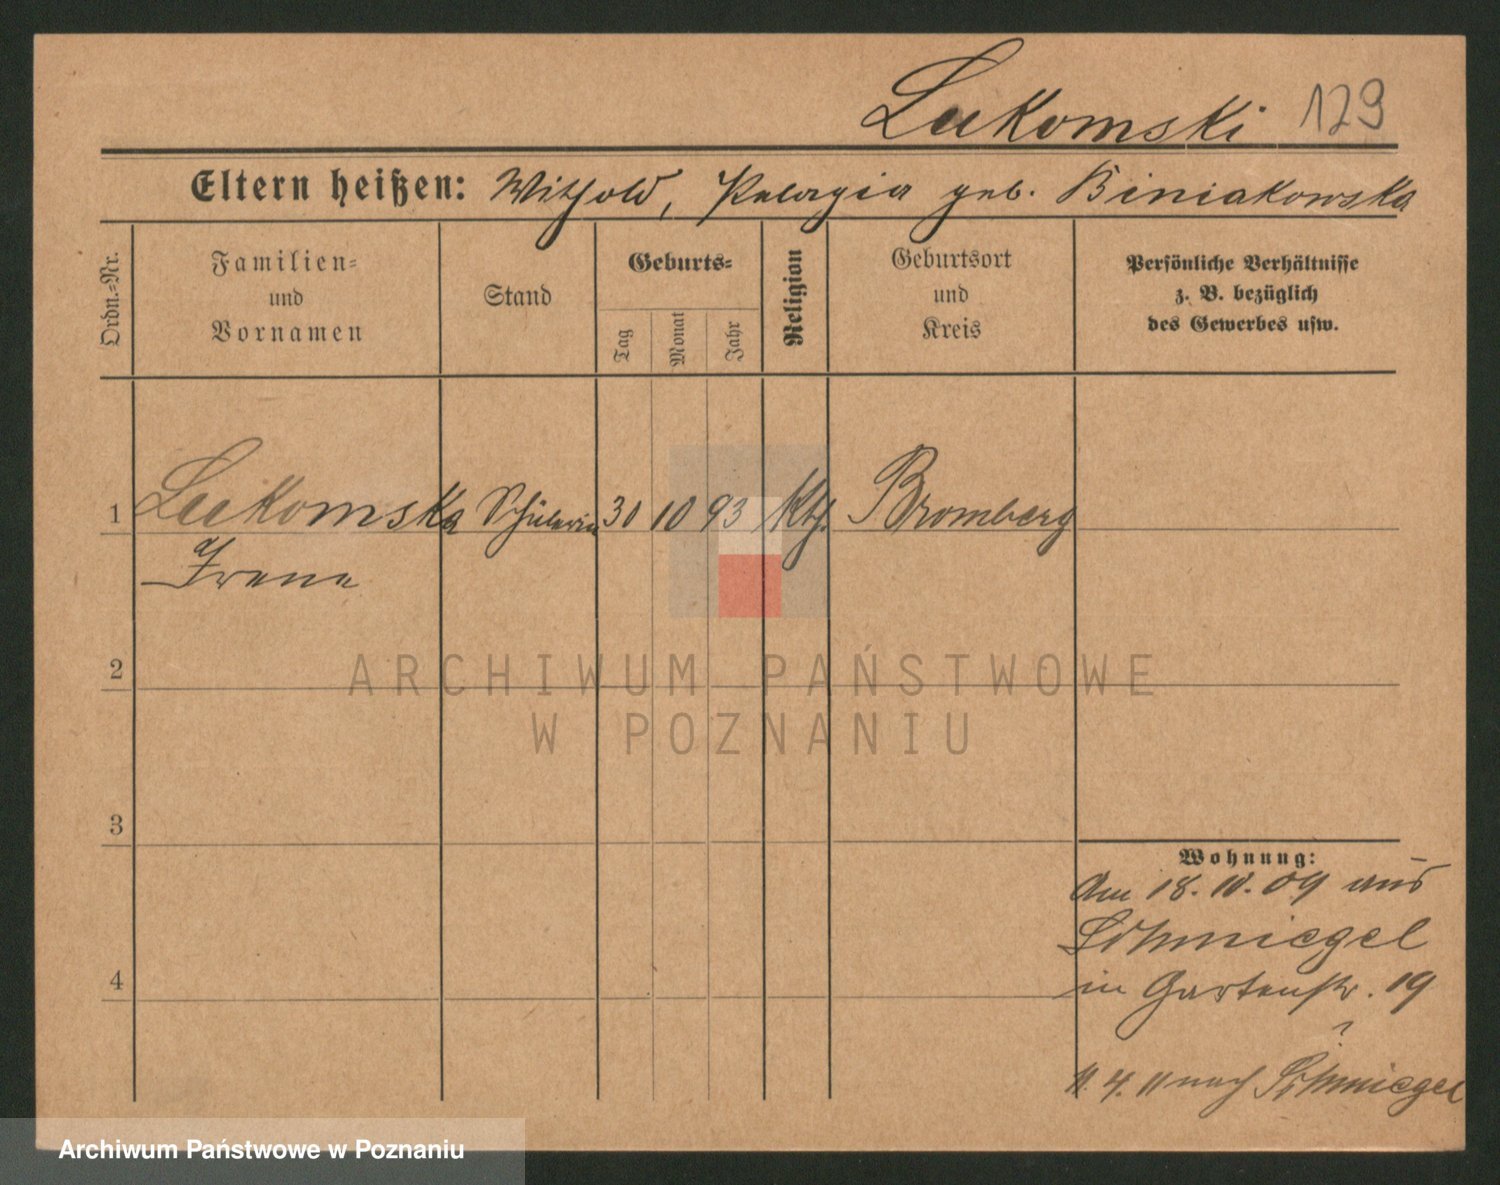 Lukomski 129
Eltern heißen: Withold, Pelagia geb. Biniakowska
Ordn.=Nr.
Familien=
und
Vornamen
Stand
Geburts=
Tag
Monat
Jahr
Religion
Geburtsort
und
Kreis
Persönliche Verhältnisse
z. B. bezüglich
des Gewerbes usw.
1 Lukomska Schülerin 30 10 93 Kth. Bromberg
Irene
2
3
4
Wohnung:
Am 18. 10. 09 aus
Schmiegel
in Gartenstr. 19
?
11. 4. 11 nach Schmiegel
ARCHIWUM PAŃSTWOWE
W POZNANIU
Archiwum Państwowe w Poznaniu